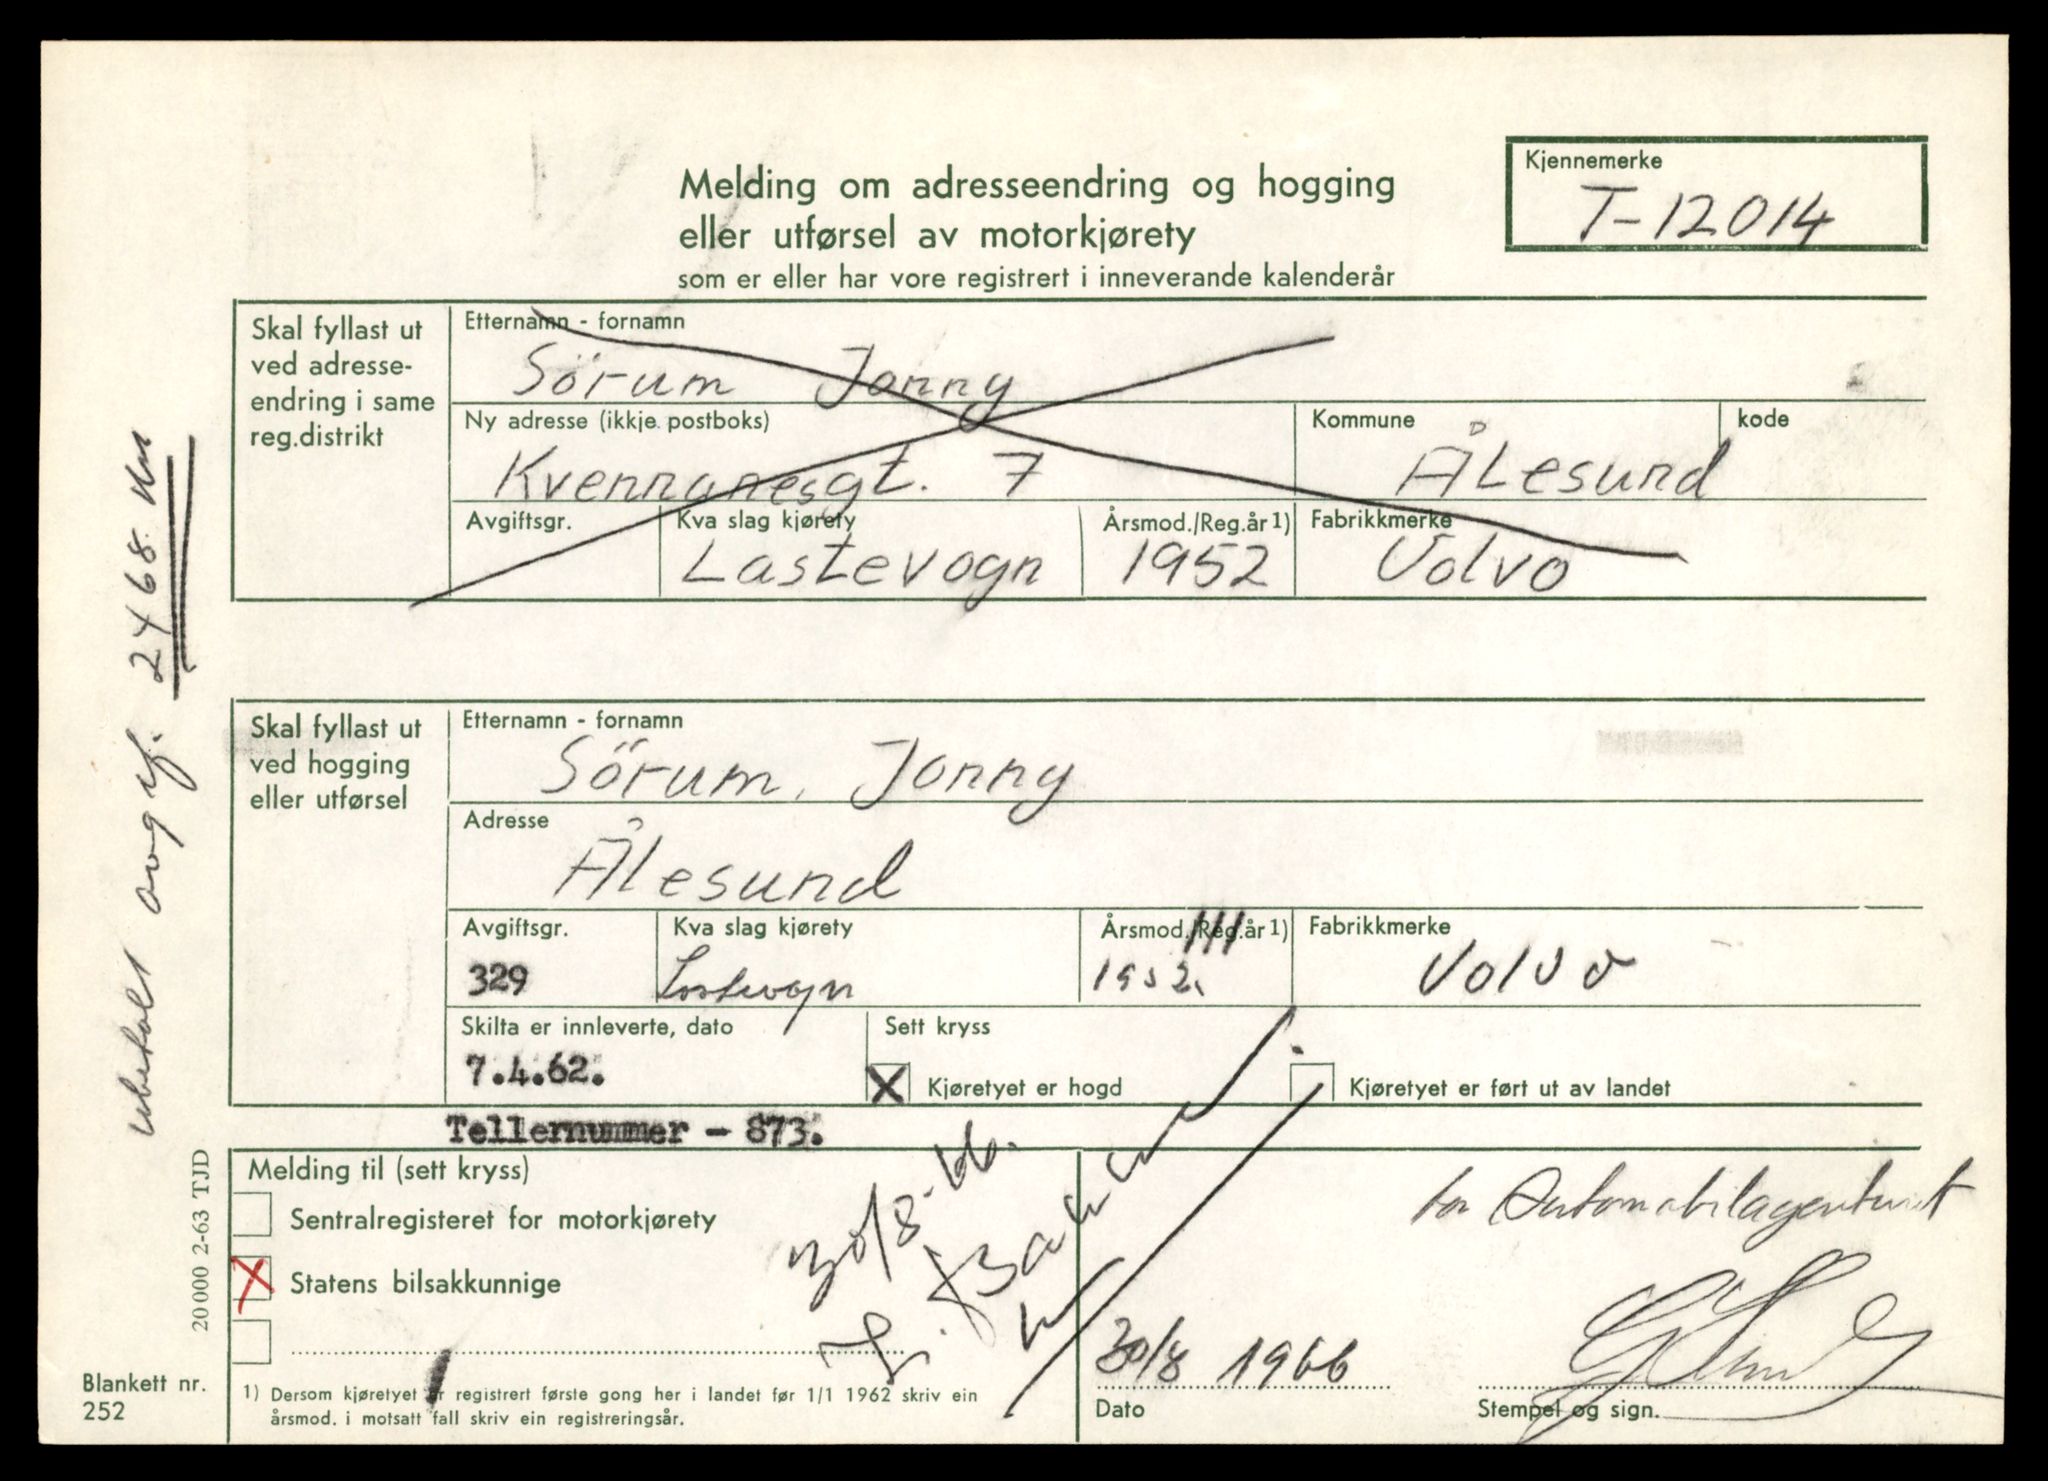 Melding om adresseendring og hogging
eller utførsel av motorkjørety
som er eller har vore registrert i inneverande kalenderår
Kjennemerke
T-12014
Skal fyllast ut
ved adresse-
endring i same
reg.distrikt
Etternamn - fornamn
Sörum Jonny
Ny adresse (ikkje postboks)
Kvennanesgt. 7
Kommune
Ålesund
kode
Avgiftsgr.
Kva slag kjørety
Lastevogn
Årsmod./Reg.år 1)
1952
Fabrikkmerke
Volvo
Skal fyllast ut
ved hogging
eller utførsel
Etternamn - fornamn
Sörum, Jonny
Adresse
Ålesund
Avgiftsgr.
329
Kva slag kjørety
Lastevogn
Årsmod./Reg.år 1)
1952.
Fabrikkmerke
Volvo
Skilta er innleverte, dato
7.4.62.
Sett kryss
X Kjøretyet er hogd
Kjøretyet er ført ut av landet
Tellernummer - 873.
Melding til (sett kryss)
Sentralregisteret for motorkjørety
X Statens bilsakkunnige
30/8-66.
for Automobilagenturet
30/8 1966
Dato
Stempel og sign.
1) Dersom kjøretyet er registrert første gong her i landet før 1/1 1962 skriv ein
årsmod. i motsatt fall skriv ein registreringsår.
Blankett nr.
252
20 000 2-63 TJD
ubetalt avgif. 2468 Kr